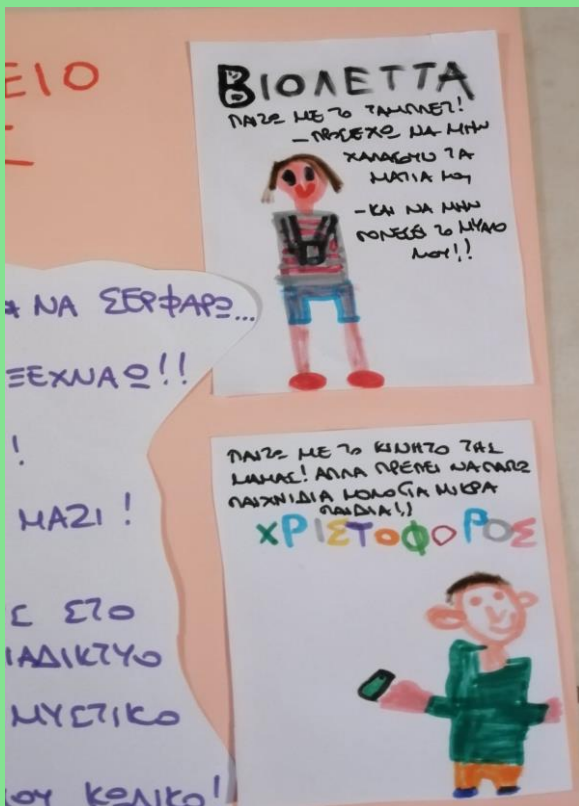 ΕΙΟ
Σ
ΒΙΟΛΕΤΤΑ
ΠΑΙΖΩ ΜΕ ΤΟ ΤΑΜΠΛΕΤ!
- ΠΡΟΣΕΧΩ ΝΑ ΜΗΝ
ΧΑΛΑΣΟΥΝ ΤΑ
ΜΑΤΙΑ ΜΟΥ
- ΚΑΙ ΝΑ ΜΗΝ
ΠΟΝΕΣΕΙ ΤΟ ΜΥΑΛΟ
ΜΟΥ!!
ΝΑ ΣΕΡΦΑΡΩ...
ΞΕΧΝΑΩ!!
!
ΜΑΖΙ!
Σ ΣΤΟ
ΙΑΔΙΚΤΥΟ
ΜΥΣΤΙΚΟ
ΜΟΥ ΚΩΔΙΚΟ!
ΠΑΙΖΩ ΜΕ ΤΟ ΚΙΝΗΤΟ ΤΗΣ
ΜΑΜΑΣ! ΑΛΛΑ ΠΡΕΠΕΙ ΝΑ ΠΑΙΖΩ
ΠΑΙΧΝΙΔΙΑ ΜΟΝΟ ΓΙΑ ΜΙΚΡΑ
ΠΑΙΔΙΑ!!
ΧΡΙΣΤΟΦΟΡΟΣ